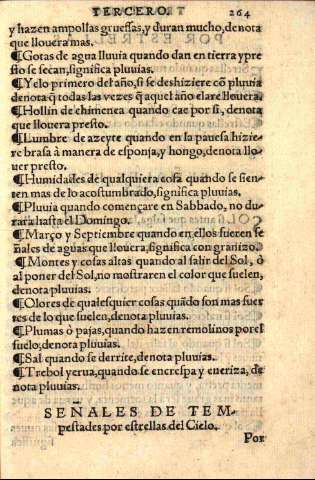 TERCERO.
264
y hazen ampollas gruessas, y duran mucho, denota
que llouera mas.
¶Gotas de agua lluuia quando dan en tierra y pre
sto se secan, significa pluuias.
¶Y elo primero del año, si se deshiziere cõ pluuia
denota q̃ todas las vezes q̃ aquel año elare llouera.
¶Hollin de chimenea quando cae por si, denota
que llouera presto.
¶Lumbre de azeyte quando en la pauesa hizie-
re brasa à manera de esponja, y hongo, denota llo-
uer presto.
¶Humidades de qualquiera cosa quando se sien-
ten mas de lo acostumbrado, significa pluuias.
¶Pluuia quando començare en Sabbado, no du-
rara hasta el Domingo.
¶Março y Septiembre quando en ellos fueren se
ñales de aguas que llouera, significa con granizo.
¶Montes y cosas altas quando al salir del Sol, ò
al poner del Sol, no mostraren el color que suelen,
denota pluuias.
¶Olores de qualesquier cosas quãdo son mas fuer
tes de lo que suelen, denota pluuias.
¶Plumas ò pajas, quando hazen remolinos por el
suelo, denota pluuias.
¶Sal quando se derrite, denota pluuias.
¶Trebol yerua, quando se encrespa y eneriza, de
nota pluuias.
SEÑALES DE TEM-
pestades por estrellas del Cielo.
Por